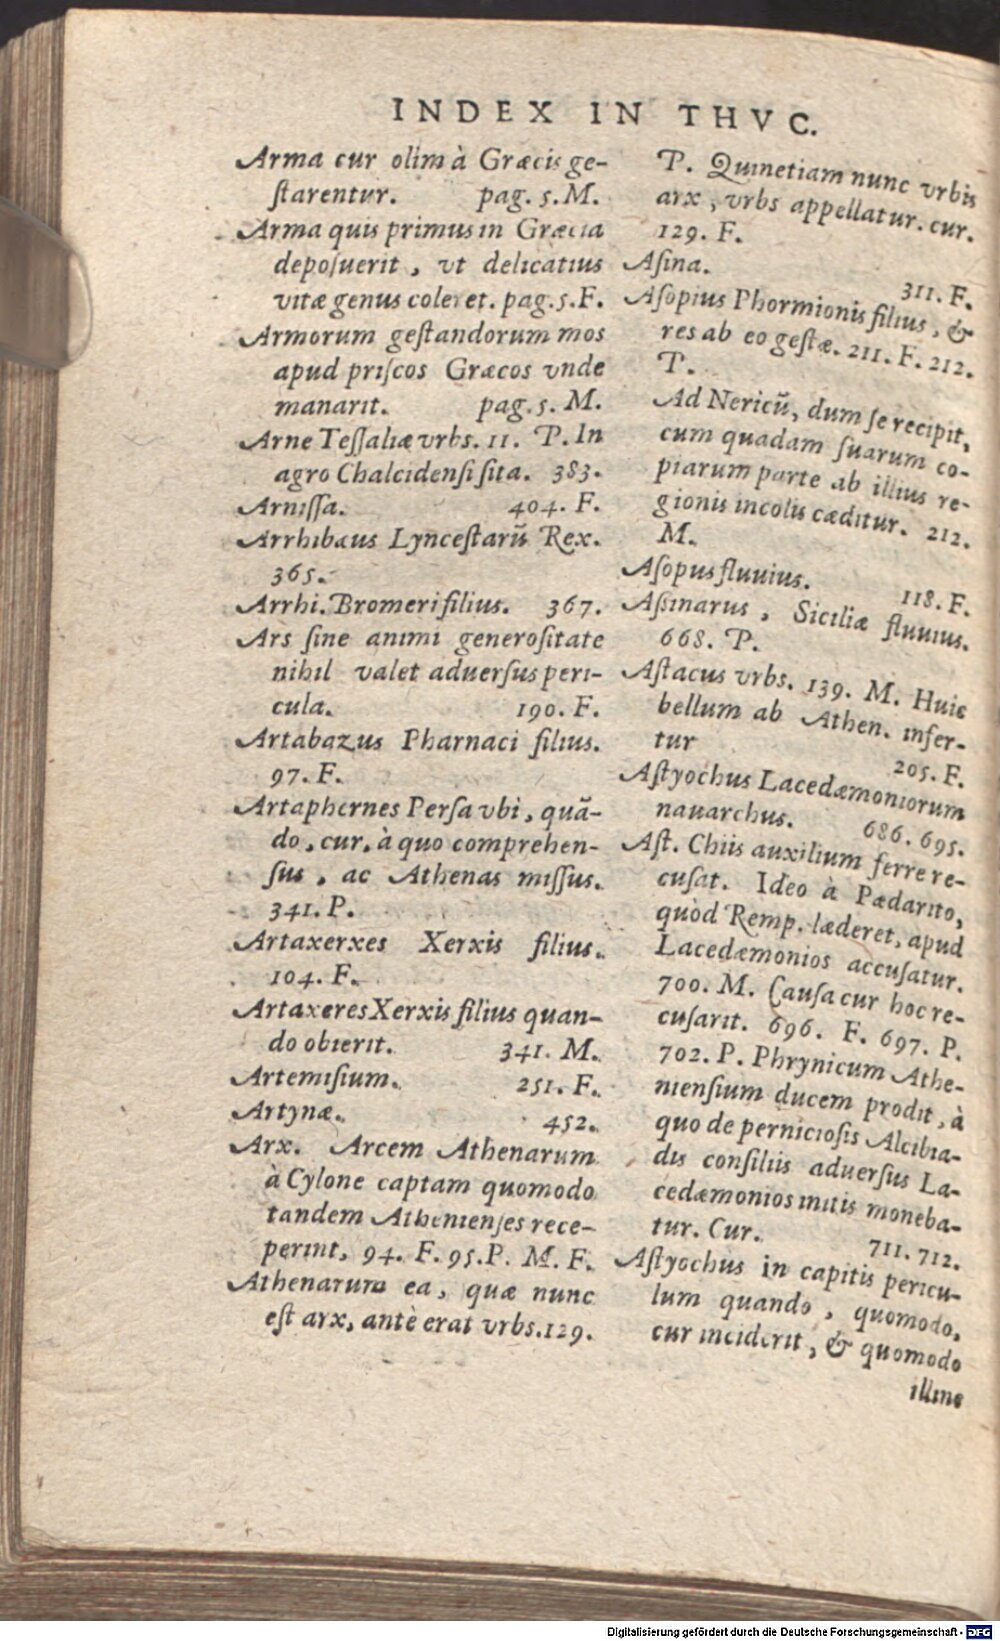 INDEX IN THVC.
Arma cur olim à Græcis ge-
ſtarentur. pag. 5. M.
Arma quis primus in Græcia
depoſuerit, vt delicatius
vitæ genus coleret. pag. 5. F.
Armorum geſtandorum mos
apud priſcos Græcos vnde
manarit. pag. 5. M.
Arne Teſſaliæ vrbs. 11. P. In
agro Chalcidenſi ſita. 383.
Arniſſa. 404. F.
Arrhibæus Lynceſtarũ Rex.
365.
Arrhi. Bromeri filius. 367.
Ars ſine animi generoſitate
nihil valet aduerſus peri-
cula. 190. F.
Artabazus Pharnaci filius.
97. F.
Artaphernes Perſa vbi, quã-
do, cur, à quo comprehen-
ſus, ac Athenas miſſus.
341. P.
Artaxerxes Xerxis filius.
104. F.
Artaxeres Xerxis filius quan-
do obierit. 341. M.
Artemiſium. 251. F.
Artynæ. 452.
Arx. Arcem Athenarum
à Cylone captam quomodo
tandem Athenienſes rece-
perint, 94. F. 95. P. M. F.
Athenarum ea, quæ nunc
eſt arx, antè erat vrbs. 129.
P. Quinetiam nunc vrbis
arx, vrbs appellatur. cur.
129. F.
Aſina. 311. F.
Aſopius Phormionis filius, &
res ab eo geſtæ. 211. F. 212.
P.
Ad Nericũ, dum ſe recipit,
cum quadam ſuarum co-
piarum parte ab illius re-
gionis incolis cæditur. 212.
M.
Aſopus fluuius. 118. F.
Aßinarus, Siciliæ fluuius.
668. P.
Aſtacus vrbs. 139. M. Huic
bellum ab Athen. infer-
tur 205. F.
Aſtyochus Lacedæmoniorum
nauarchus. 686. 695.
Aſt. Chiis auxilium ferre re-
cuſat. Ideo à Pædarito,
quòd Remp. læderet, apud
Lacedæmonios accuſatur.
700. M. Cauſa cur hoc re-
cuſarit. 696. F. 697. P.
702. P. Phrynicum Athe-
nienſium ducem prodit, à
quo de pernicioſis Alcibia-
dis conſiliis aduerſus La-
cedæmonios initis moneba-
tur. Cur. 711. 712.
Aſtyochus in capitis pericu-
lum quando, quomodo,
cur inciderit, & quomodo
illinc
Digitalisierung gefördert durch die Deutsche Forschungsgemeinschaft - DFG